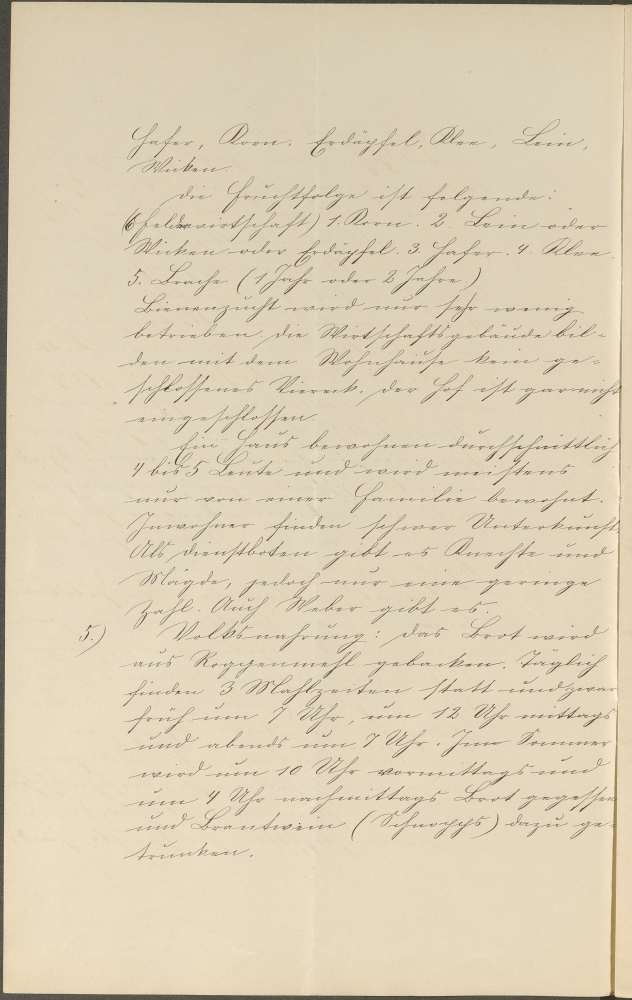 Hafer, Korn, Erdäpfel, Klee, Lein,
Wicken.
Die Fruchtfolge ist folgende:
(6 Felderwirtschaft) 1. Korn. 2. Lein oder
Wicken oder Erdäpfel. 3. Hafer. 4. Klee.
5. Brache (1 Jahr oder 2 Jahre.)
Bienenzucht wird nur sehr wenig
betrieben. Die Wirtschaftsgebäude bil-
den mit dem Wohnhause kein ge-
schlossenes Viereck. Der Hof ist gar nicht
eingeschlossen.
Ein Haus bewohnen durchschnittlich
4 bis 5 Leute und wird meistens
nur von einer Familie bewohnt.
Inwohner finden schwer Unterkunft.
Als Dienstboten gibt es Knechte und
Mägde, jedoch nur eine geringe
Zahl. Auch Weber gibt es.
5.) Volksnahrung: Das Brot wird
aus Roggenmehl gebacken. Täglich
finden 3 Mahlzeiten statt und zwar
früh um 7 Uhr, um 12 Uhr mittags
und abends um 7 Uhr. Im Sommer
wird um 10 Uhr vormittags und
um 4 Uhr nachmittags Brot gegessen
und Brantwein (Schnapps) dazu ge-
trunken.